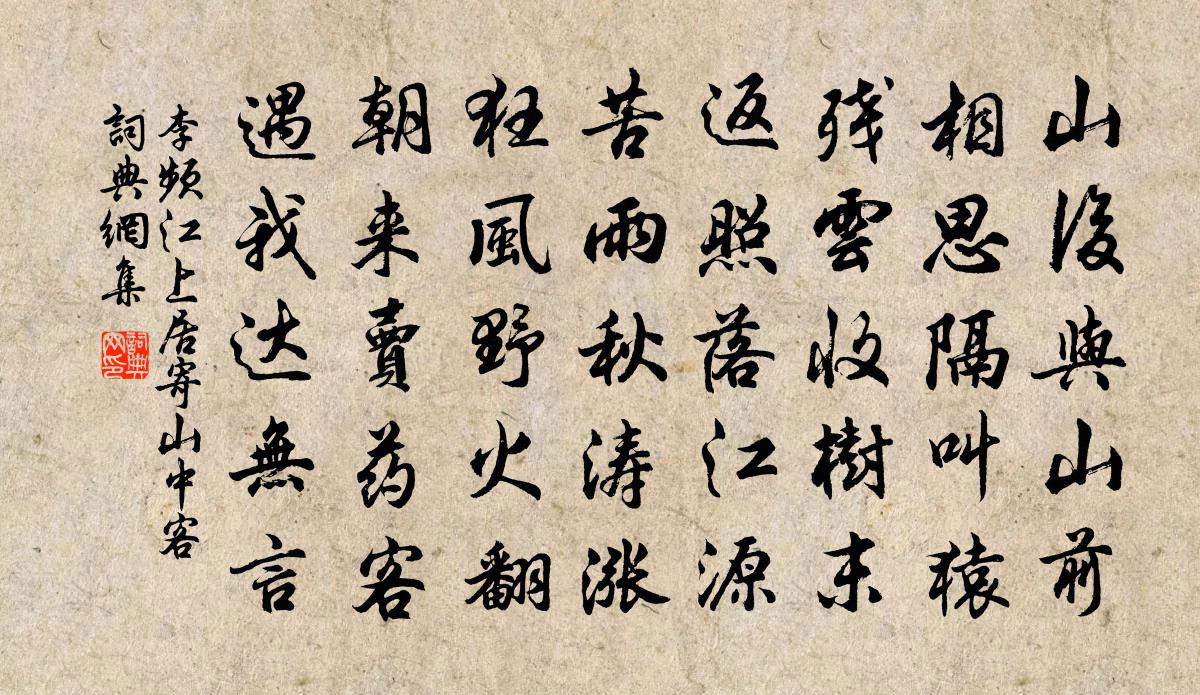 山後與山前
相思隔叫猿
残雲收樹末
返照落江源
苦雨秋涛漲
狂風野火翻
朝来賣药客
遇我达無言
李频江上居寄山中客
詞典網集
詞典网印